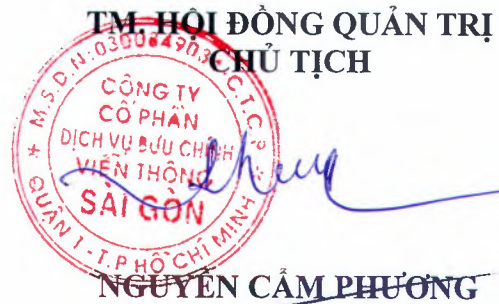 TM. HỘI ĐỒNG QUẢN TRỊ
CHỦ TỊCH
M.S.D.N:0300849034-C.T.C.P
CÔNG TY
CỔ PHẦN
DỊCH VỤ BƯU CHÍNH
VIỄN THÔNG
SÀI GÒN
QUẬN 1 - T.P HỒ CHÍ MINH
NGUYỄN CẨM PHƯƠNG